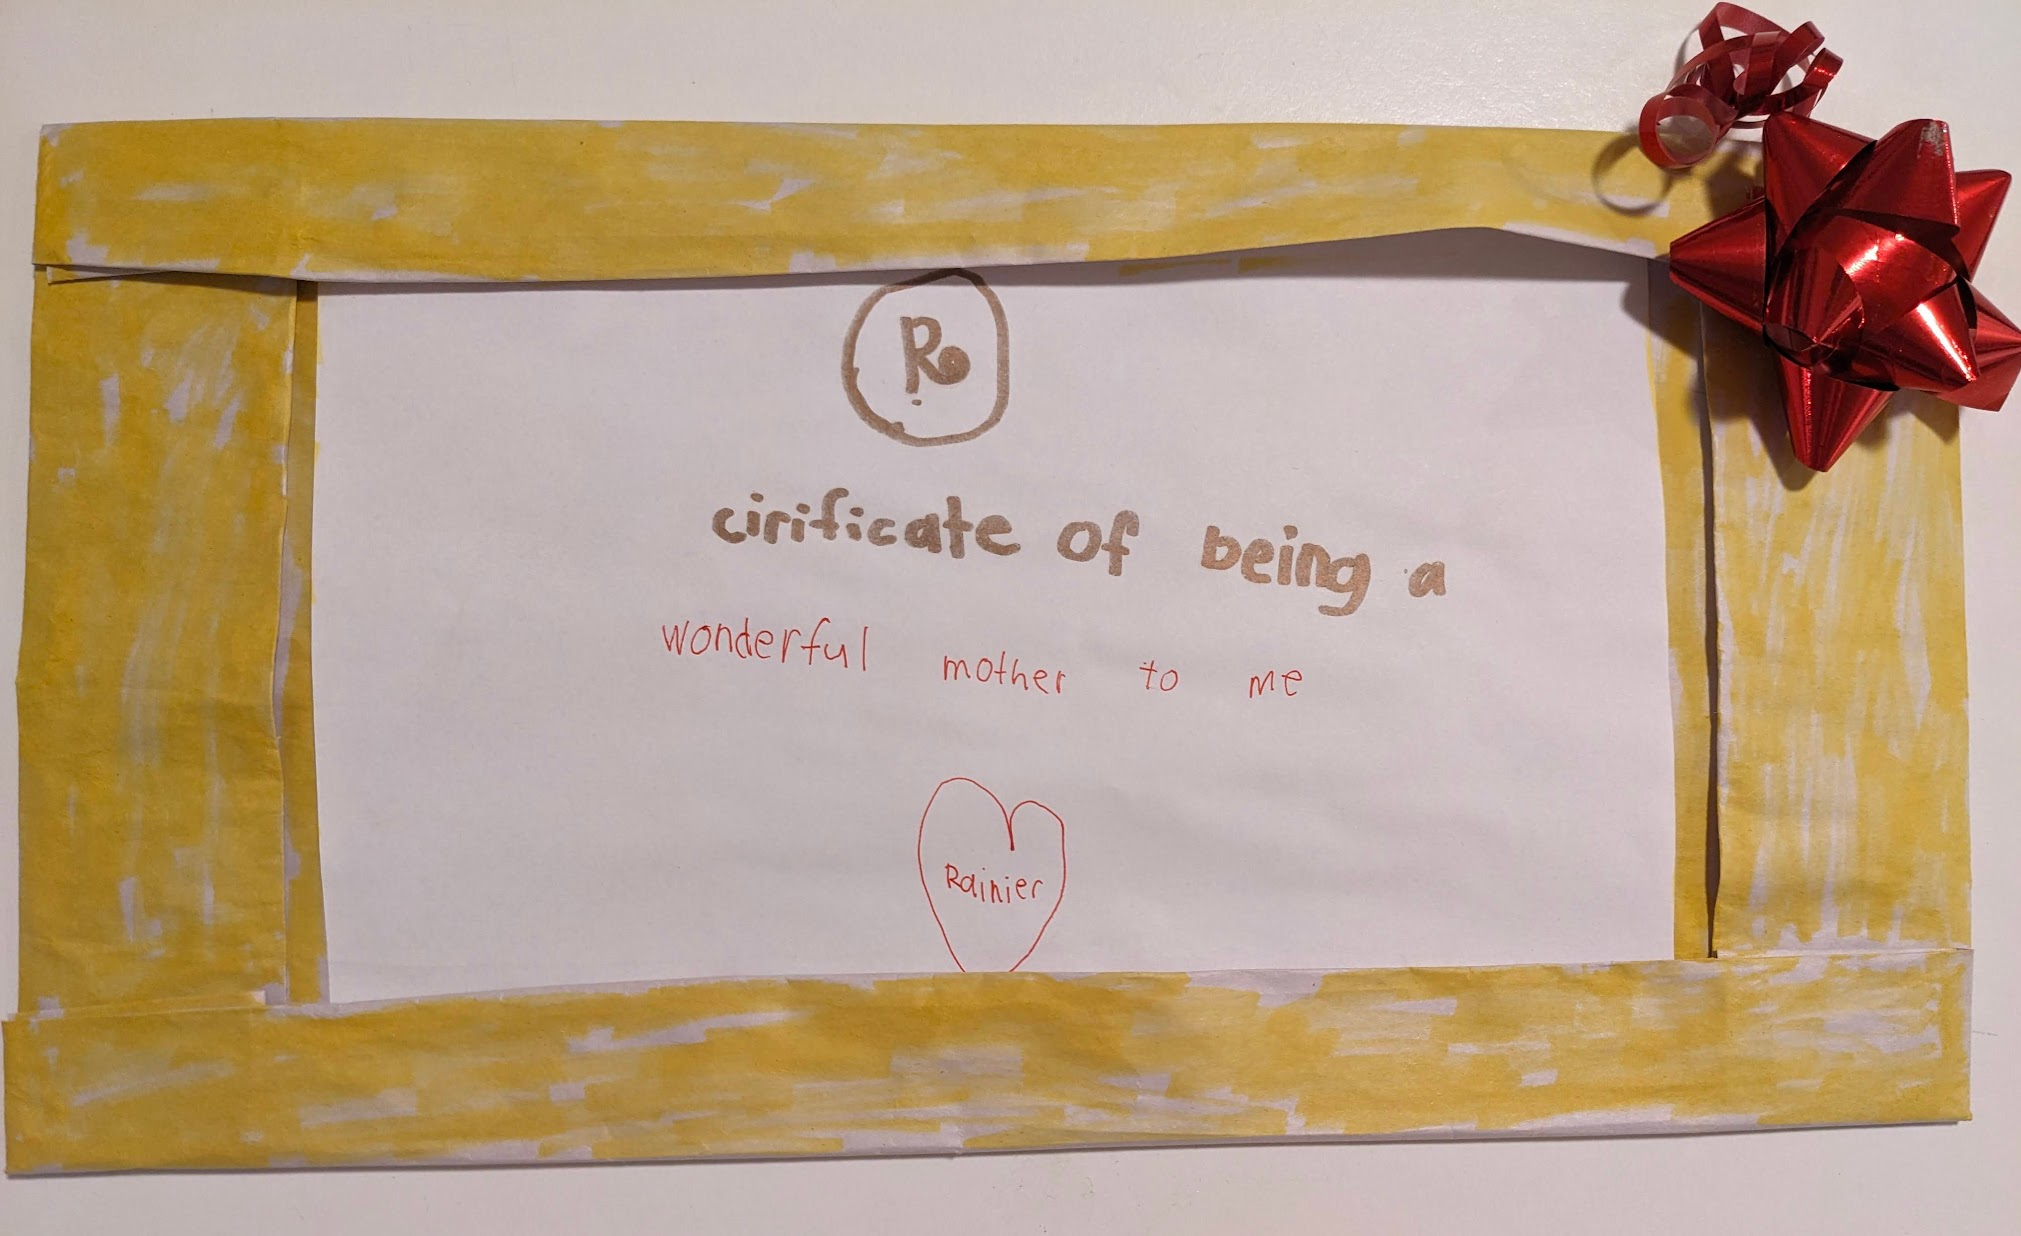 R
cirificate of being a
wonderful mother to me
Rainier